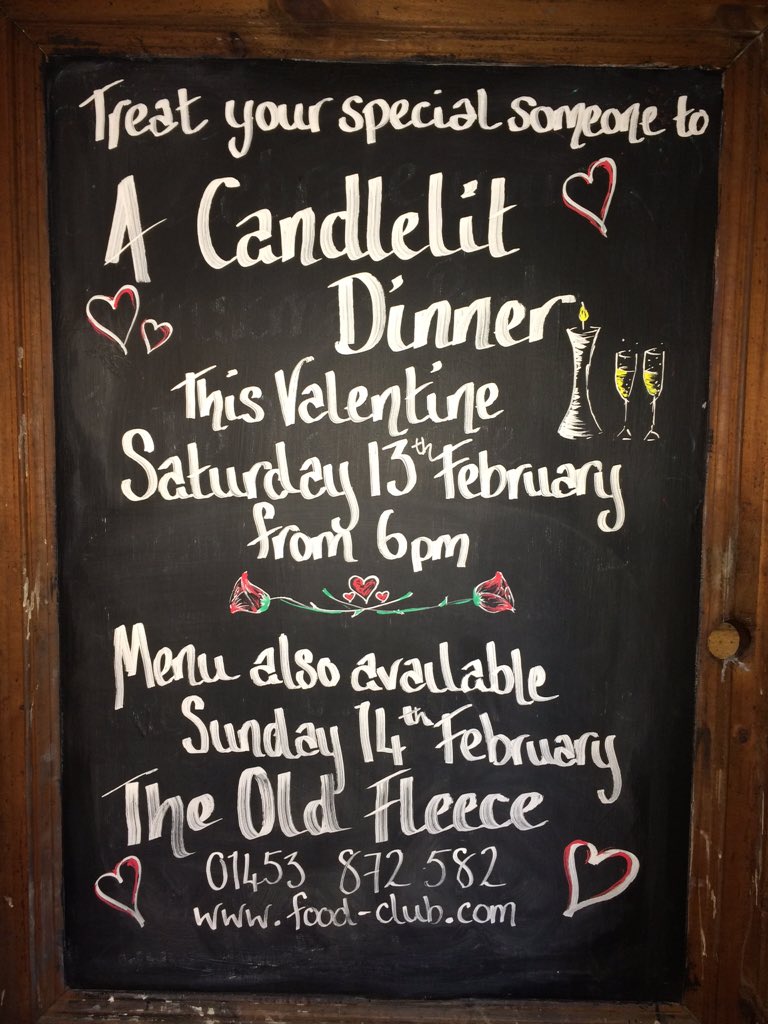 Treat your special someone to
A Candlelit
Dinner
This Valentine
Saturday 13th February
from 6pm
Menu also available
Sunday 14th February
The Old Fleece
01453 872 582
www.food-club.com